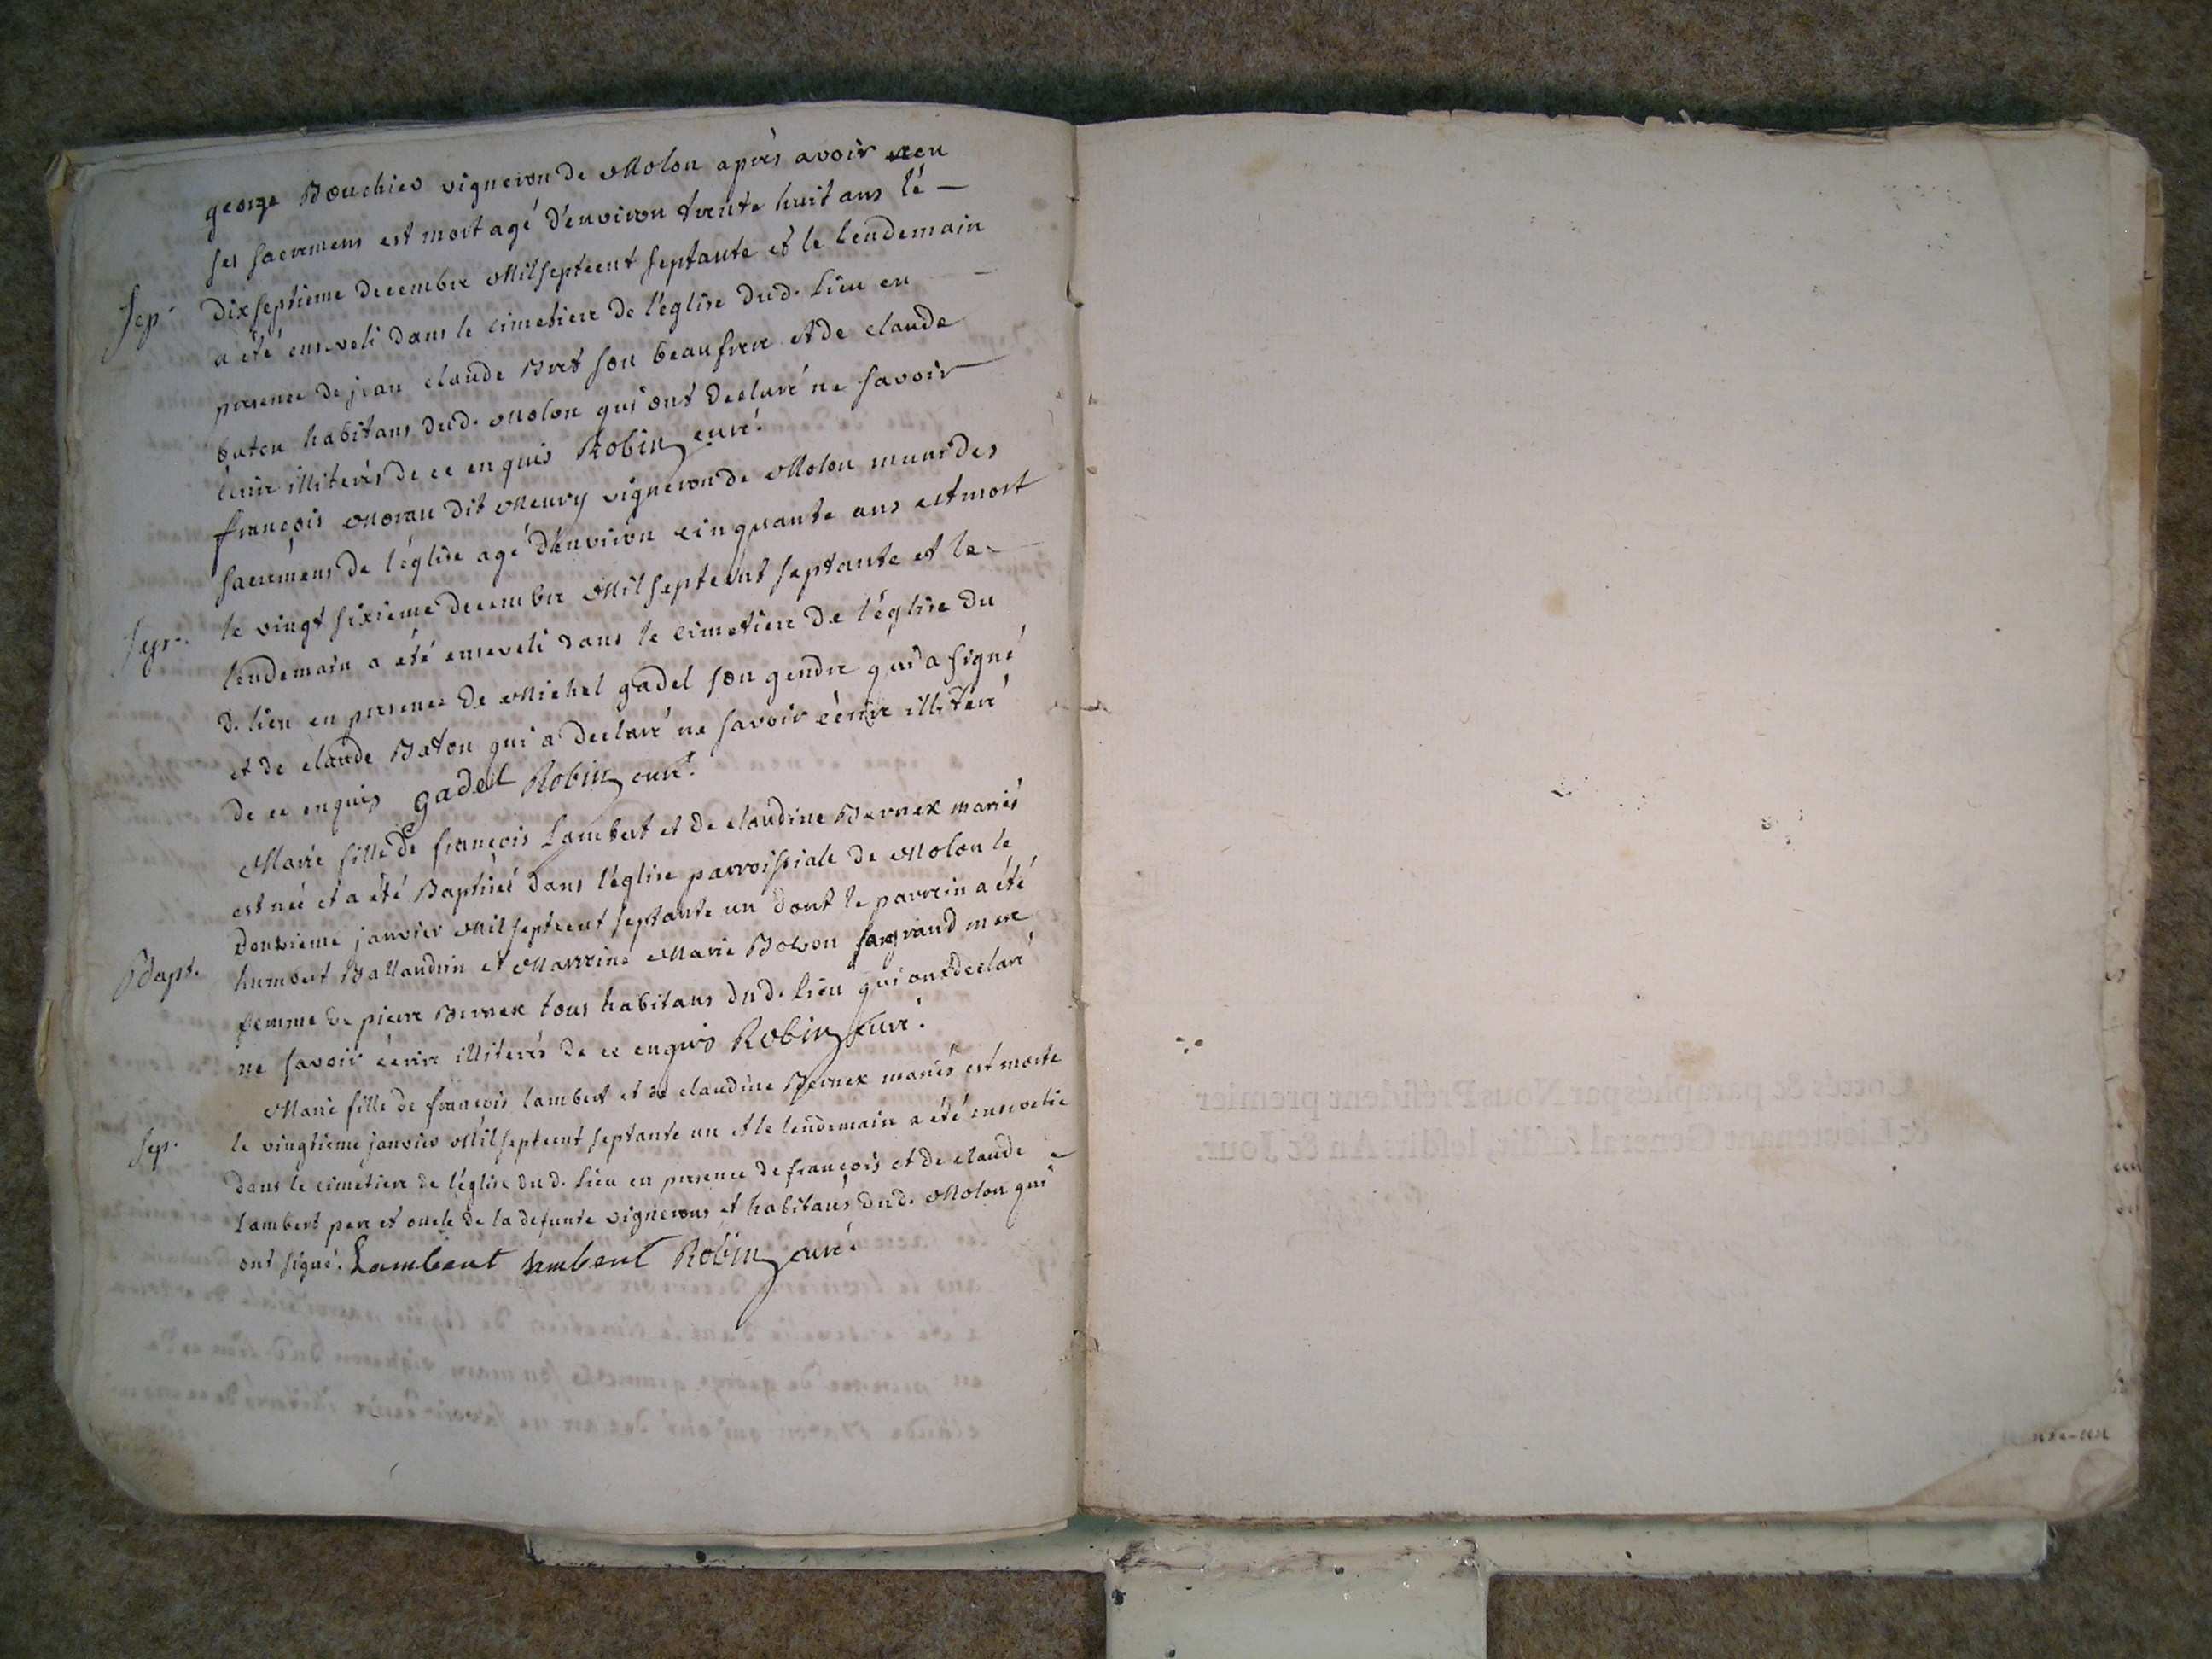 george Bouchier vigneron de Molon après avoir reçu
ses sacremens est mort agé d'environ trente huit ans le
Sep. dixseptieme decembre Milseptcent septante et le lendemain
a été enseveli dans le cimetiere de l'eglise dud. Lieu en
presence de jean claude Bret son beaufrere et de claude
baton habitans dud. Molon qui ont declaré ne savoir
écrire illiterés de ce enquis Robin curé.
françois Morau dit Meury vigneron de Molon muni des
sacremens de l'église agé d'environ cinquante ans est mort
Sep. le vingt sixieme decembre Milseptcent septante et le
lendemain a été enseveli dans le cimetiere de l'église du
d. lieu en presence de Michel gadel son gendre qui a signé
et de claude Baton qui a declaré ne savoir écrire illiteré
de ce enquis gadel Robin curé.
Marie fille de françois Lambert et de claudine Bernex mariés
est née et a été Baptisée dans l'église parroissiale de Molon le
douzieme janvier Milseptcent septante un dont le parrein a été
Bapt. humbert Ballandrin et Marreine Marie Bolson sa grand mere
femme de pierre Bernex tous habitans dud. Lieu qui ont declaré
ne savoir écrire illiterés de ce enquis Robin curé.
Marie fille de françois lambert et de claudine Bernex mariés est morte
Sep. le vingtieme janvier Milseptcent septante un et le lendemain a été ensevelie
dans le cimetiere de l'église dud. Lieu en presence de françois et de claude
Lambert pere et oncle de la defunte vignerons et habitans dud. Molon qui
ont signé. Lambert Lambert Robin curé.